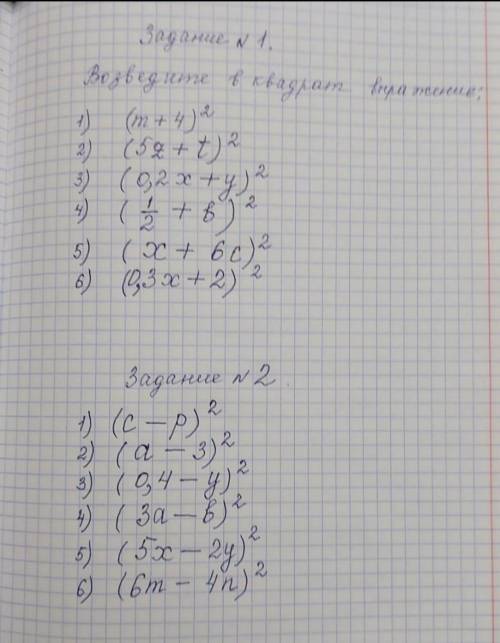 Задание № 1.
Возведите в квадрат выражение:
1) (m + 4)²
2) (5z + t)²
3) (0,2x + y)²
4) (1/2 + b)²
5) (x + 6c)²
6) (0,3x + 2)²
Задание № 2.
1) (c − p)²
2) (a − 3)²
3) (0,4 − y)²
4) (3a − b)²
5) (5x − 2y)²
6) (6m − 4n)²